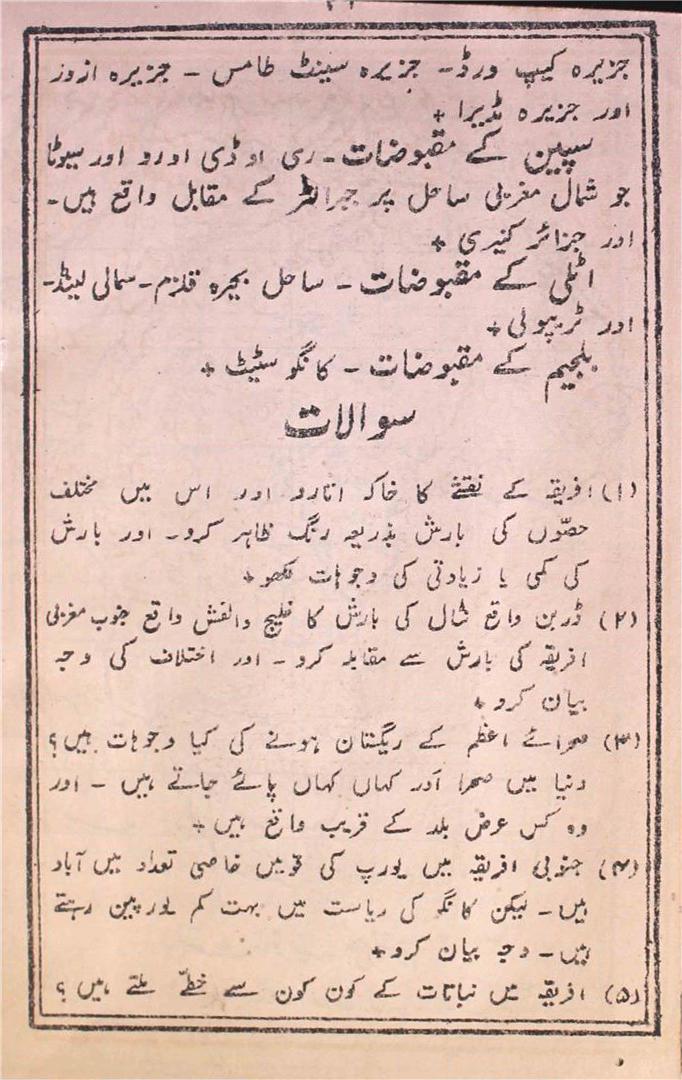 جزیرہ کیپ ورڈ۔ جزیرہ سینٹ طامس ۔ جزیرہ ازوز
اور جزیرہ مڈیرا +
سپین کے مقبوضات۔ ری اوڈی اورو اور سیوٹا
جو شمال مغربی ساحل پر جبرالٹر کے مقابل واقع ہیں۔
اور جزائر کنیری +
اٹلی کے مقبوضات ۔ ساحل بحیرہ قلزم۔ سمالی لینڈ۔
اور ٹریپولی +
بلجیم کے مقبوضات ۔ کانگو سٹیٹ +
سوالات
(۱) افریقہ کے نقشے کا خاکہ اتارو اور اس میں مختلف
حصّوں کی بارش بذریعہ رنگ ظاہر کرو۔ اور بارش
کی کمی یا زیادتی کی وجوہات لکھو +
(۲) ڈربن واقع نٹال کی بارش کا خلیج والفش واقع جنوب مغربی
افریقہ کی بارش سے مقابلہ کرو ۔ اور اختلاف کی وجہ
بیان کرو +
(۳) صحرائے اعظم کے ریگستان ہونے کی کیا وجوہات ہیں؟
دنیا میں صحرا اَور کہاں کہاں پائے جاتے ہیں ۔ اور
وہ کس عرض بلد کے قریب واقع ہیں +
(۴) جنوبی افریقہ میں یورپ کی قومیں خاصی تعداد میں آباد
ہیں۔ لیکن کانگو کی ریاست میں بہت کم یورپین رہتے
ہیں۔ وجہ بیان کرو +
(۵) افریقہ میں نباتات کے کون کون سے خطّے ملتے ہیں؟